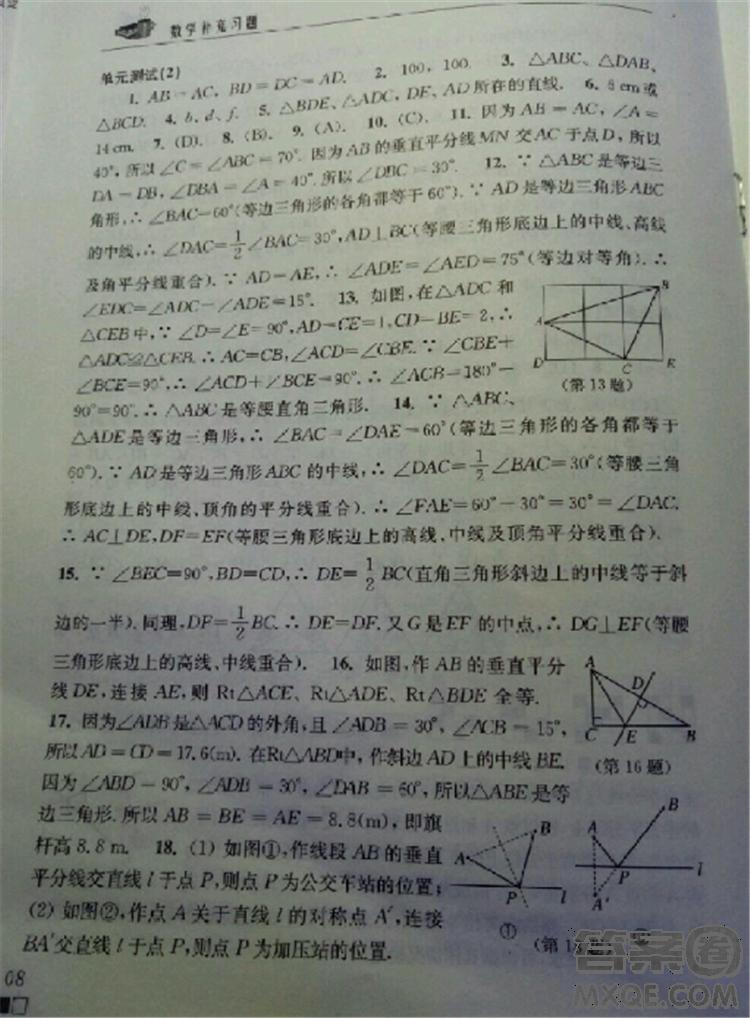 数学补充习题
单元测试(2)
1. AB=AC, BD=DC=AD. 2. 100, 100. 3. △ABC、△DAB、
△BCD. 4. b、d、f. 5. △BDE、△ADC, DE、AD所在的直线. 6. 8 cm或
14 cm. 7. (D). 8. (B). 9. (A). 10. (C). 11. 因为AB=AC, ∠A=
40°, 所以∠C=∠ABC=70°. 因为AB的垂直平分线MN交AC于点D, 所以
DA=DB, ∠DBA=∠A=40°. 所以∠DBC=30°. 12. ∵ △ABC是等边三
角形, ∴ ∠BAC=60°(等边三角形的各角都等于60°). ∵ AD是等边三角形ABC
的中线, ∴ ∠DAC=1/2∠BAC=30°, AD⊥BC(等腰三角形底边上的中线、高线
及角平分线重合). ∵ AD=AE, ∴ ∠ADE=∠AED=75°(等边对等角). ∴
∠EDC=∠ADC-∠ADE=15°. 13. 如图, 在△ADC和
△CEB中, ∵ ∠D=∠E=90°, AD=CE=1, CD=BE=2, ∴
△ADC≌△CEB. ∴ AC=CB, ∠ACD=∠CBE. ∵ ∠CBE+
∠BCE=90°, ∴ ∠ACD+∠BCE=90°. ∴ ∠ACB=180°-
90°=90°. ∴ △ABC是等腰直角三角形. 14. ∵ △ABC、
A B D C E
(第13题)
△ADE是等边三角形, ∴ ∠BAC=∠DAE=60°(等边三角形的各角都等于
60°). ∵ AD是等边三角形ABC的中线, ∴ ∠DAC=1/2∠BAC=30°(等腰三角
形底边上的中线、顶角的平分线重合). ∴ ∠FAE=60°-30°=30°=∠DAC.
∴ AC⊥DE, DF=EF(等腰三角形底边上的高线、中线及顶角平分线重合).
15. ∵ ∠BEC=90°, BD=CD, ∴ DE=1/2BC(直角三角形斜边上的中线等于斜
边的一半). 同理, DF=1/2BC. ∴ DE=DF. 又G是EF的中点, ∴ DG⊥EF(等腰
三角形底边上的高线、中线重合). 16. 如图, 作AB的垂直平分
线DE, 连接AE, 则Rt△ACE、Rt△ADE、Rt△BDE全等.
17. 因为∠ADB是△ACD的外角, 且∠ADB=30°, ∠ACB=15°,
所以AD=CD=17.6(m). 在Rt△ABD中, 作斜边AD上的中线BE.
因为∠ABD=90°, ∠ADB=30°, ∠DAB=60°, 所以△ABE是等
边三角形. 所以AB=BE=AE=8.8(m), 即旗
A D C E B
(第16题)
杆高8.8 m. 18. (1) 如图①, 作线段AB的垂直
平分线交直线l于点P, 则点P为公交车站的位置;
(2) 如图②, 作点A关于直线l的对称点A′, 连接
BA′交直线l于点P, 则点P为加压站的位置.
A B P l
A B P l A′
①
(第18题)
08
答案圈
MXQE.COM